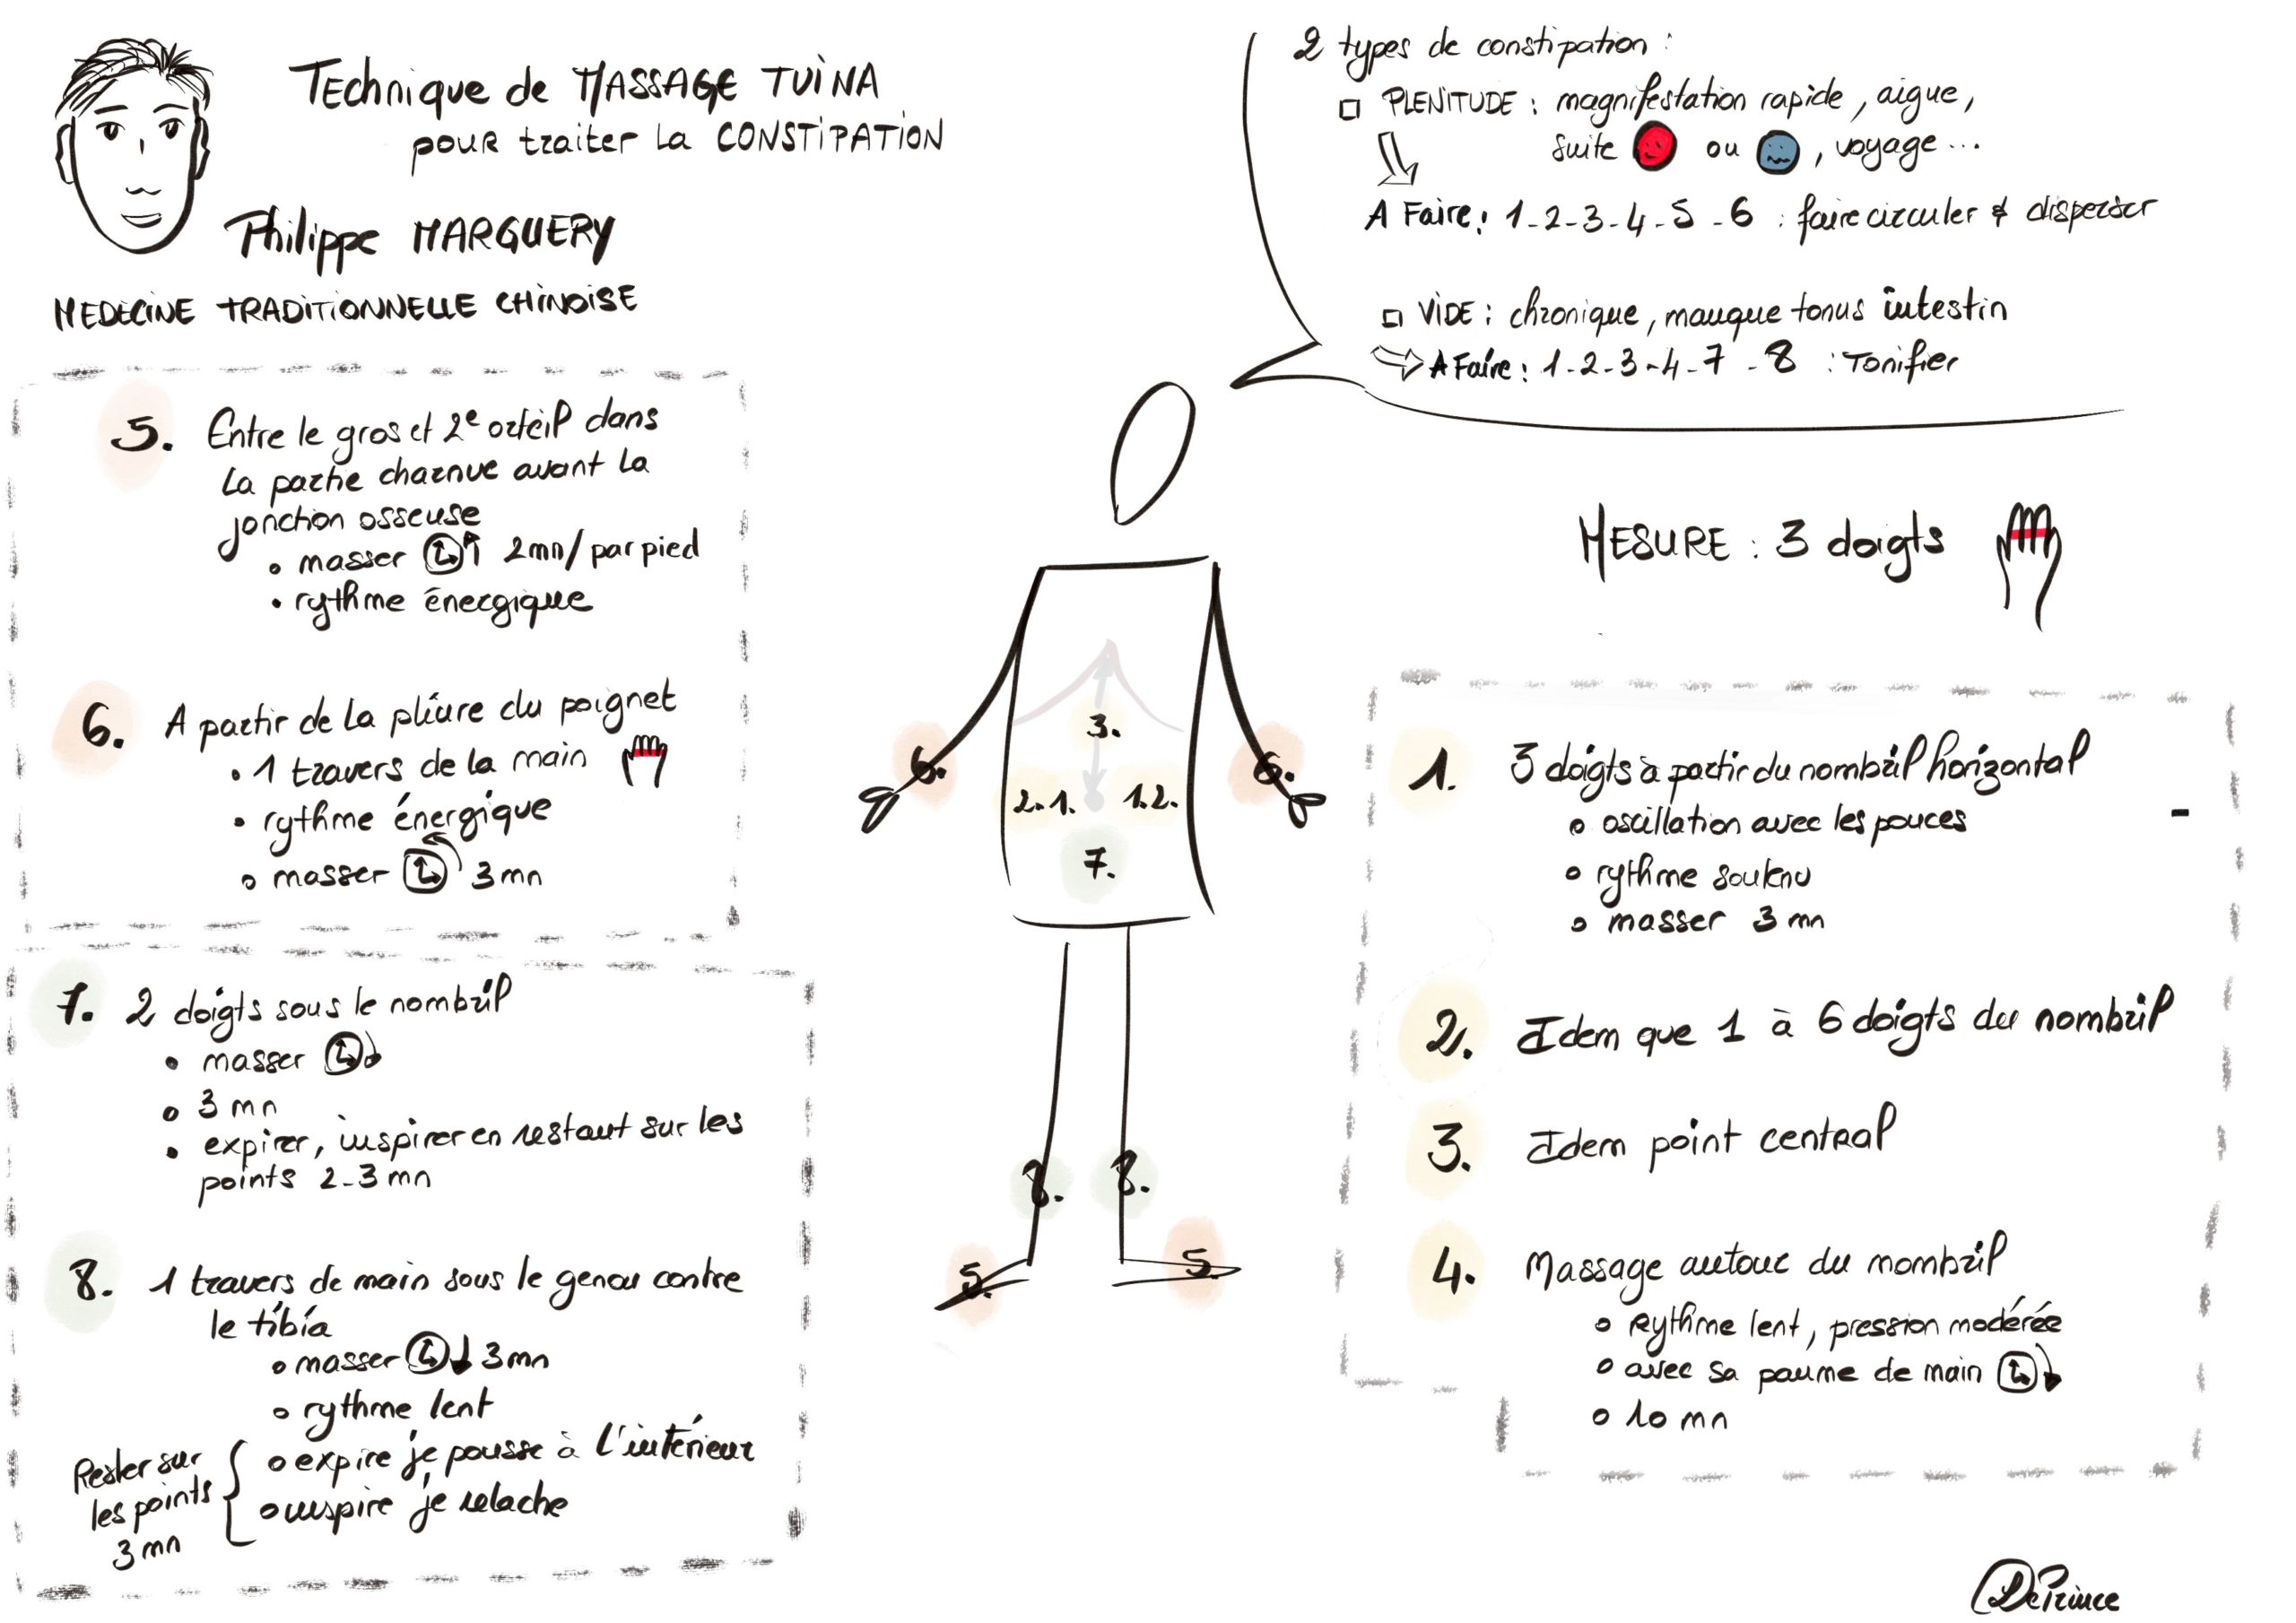 Technique de MASSAGE TUINA
pour traiter la CONSTIPATION
Philippe MARGUERY
MEDECINE TRADITIONNELLE CHINOISE
2 types de constipation :
PLENITUDE : magnifestation rapide, aigue,
suite ou , voyage...
A Faire : 1-2-3-4-5-6 : faire circuler & disperser
VIDE : chronique, manque tonus intestin
A Faire : 1-2-3-4-7-8 : Tonifier
MESURE : 3 doigts
5. Entre le gros et 2e orteil dans
la partie charnue avant la
jonction osseuse
masser 2mn/par pied
rythme énergique
6. A partir de la pliure du poignet
1 travers de la main
rythme énergique
masser 3mn
7. 2 doigts sous le nombril
masser
3 mn
expirer, inspirer en restant sur les
points 2-3 mn
8. 1 travers de main sous le genou contre
le tibia
masser 3mn
rythme lent
Rester sur
les points
3 mn
expire je pousse à l'intérieur
inspire je relache
3.
6.
6.
2. 1.
1. 2.
7.
8.
8.
5.
5.
1. 3 doigts à partir du nombril horizontal
oscillation avec les pouces
rythme soutenu
masser 3 mn
2. Idem que 1 à 6 doigts du nombril
3. Idem point central
4. Massage autour du nombril
Rythme lent, pression modérée
avec sa paume de main
10 mn
DePrince